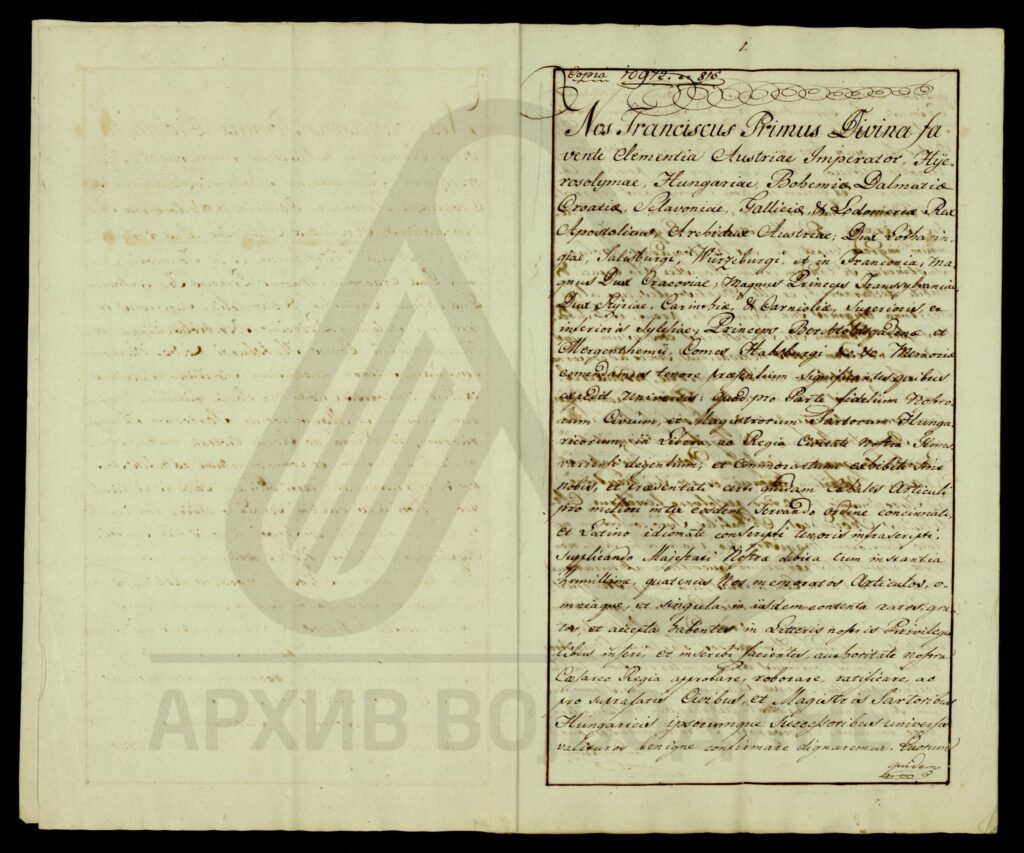 1.
Copia 10972. 815
Nos Franciscus Primus Divina fa-
vente Clementia Austriae Imperator, Hije-
rosolymae, Hungariae, Bohemiæ Dalmatiæ
Croatiæ, Sclavoniae, Galliciæ, & Lodomeriæ Rex
Apostolicus, Archidux Austriae; Dux Lotharin-
giae, Salisburgi, Würzeburgi, et in Franconia, Ma-
gnus Dux Cracoviae, Magnus Princeps Transsylvaniae,
Dux Styriae, Carinthiæ, & Carnioliæ, Superioris, et
inferioris Sylesiae, Princeps Berchtolsgadenæ et
Mergenthemii, Comes Habsburgi &c. &c. Memoriæ
comendamus tenore præsentium significantes quibus
expedit universis: quod pro Parte fidelium Nostro-
rum Civium, et Magistrorum Sartorum Hunga-
ricorum, in Libera ac Regia Civitate nostra Temes-
variensi degentium, et commorantium exhibiti sint
nobis, et præsentati certi quidam Cehales Articuli
pro meliori inter eosdem servando ordine concinnati,
et Latino idiomate conscripti tenoris infrascripti.
Suplicando Majestati Nostræ debita cum instantia
humillime, quatenus Nos memoratos Articulos, o-
mniaque, et singula in iisdem contenta ratos, gra-
tos, et accepta habentes in Litteris nostris Privilegia-
libus inseri, et inscribi facientes, authoritate nostra
Cæsareo Regia approbare, roborare, ratificare, ac
pro supradictis Civibus, et Magistris Sartoribus
Hungaricis ipsorumque Successoribus universis
valituros benigne confirmare dignaremur. Quorum
quidem
АРХИВ ВО